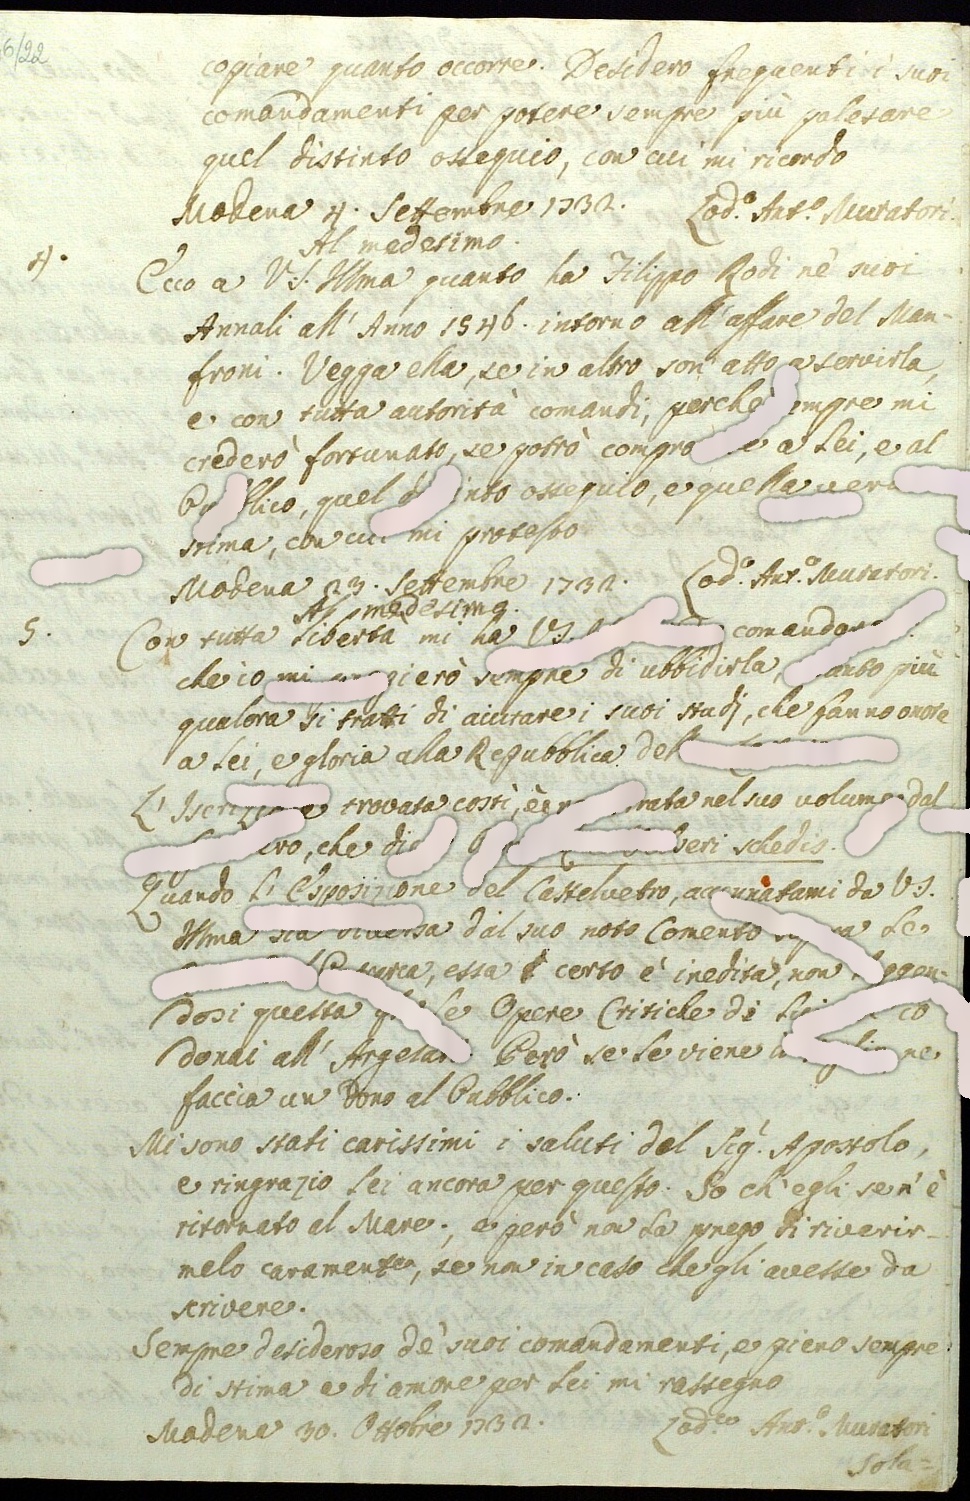 6/22
copiare quanto occorre. Desidero frequenti i suoi
comandamenti per potere sempre più palesare
quel distinto ossequio, con cui mi ricordo
Modena 4. Settembre 1732. Lod.º Ant.º Muratori.
Al medesimo.
4.
Ecco a V.S. Illma quanto ha Filippo Rodi ne' suoi
Annali all' Anno 1546. intorno all' affare del Man-
froni. Vegga ella, se in altro son atto a servirla,
e con tutta autorità comandi, perchè mi
crederò fortunato, se potrò a Lei, e al
quel ossequio, e quella
stima, con cui mi protesto
Modena 23. Settembre 1732. Lod.º Ant.º Muratori.
Al medesimo.
5.
Con tutta libertà mi ha V.S.
che io mi sempre di ubbidirla, più
qualora si tratti di aiutare i suoi studj, che fanno onore
a Lei, e gloria alla Repubblica
L' trovata costì, è nel suo volume dal
che schedis.
Quando l' Esposizione del Castelvetro, accennatami da V.S.
Illma sia diversa dal suo noto Comento le
essa certo è inedita, non
dosi questa le Opere Critiche di
donai all' Però se le viene ne
faccia un dono al Pubblico.
Mi sono stati carissimi i saluti del Sig.r Apostolo,
e ringrazio Lei ancora per questo. So ch' egli se n' è
ritornato al Mare; e però non la prego di riverir-
melo caramente, se non in caso che gli avesse da
scrivere.
Sempre desideroso de' suoi comandamenti, e pieno sempre
di stima e di amore per Lei mi rassegno
Modena 30. Ottobre 1732. Lod.co Ant.º Muratori
Sola=